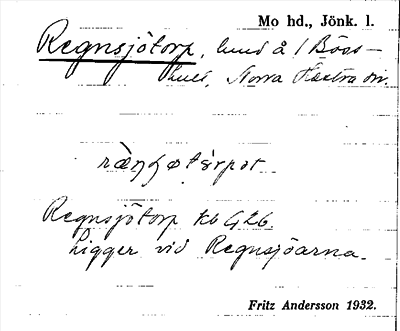 Mo hd., Jönk. l.
Regnsjötorp, lund å 1 Boss-
hult, Norra Hestra sn.
Regnsjötorp kb G26.
Ligger vid Regnsjöarna.
Fritz Andersson 1932.